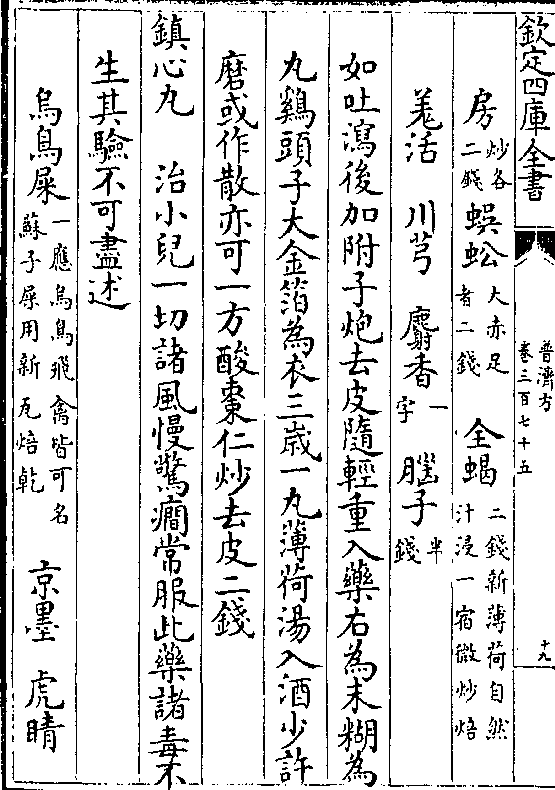 欽定四庫全書
普濟方
卷三百七十五
十九
房炒各二錢 蜈蚣大赤足者二錢 全蝎二錢新薄荷自然汁浸一宿微炒焙
羌活 川芎 麝香一字 腦子半錢
如吐瀉後加附子炮去皮隨輕重入藥右為末糊為
丸鷄頭子大金箔為衣三歲一丸薄荷湯入酒少許
磨或作散亦可一方酸棗仁炒去皮二錢
鎮心丸 治小兒一切諸風慢驚癇常服此藥諸毒不
生其驗不可盡述
烏鳥屎一應烏鳥飛禽皆可名蘇子屎用新瓦焙乾 京墨 虎睛